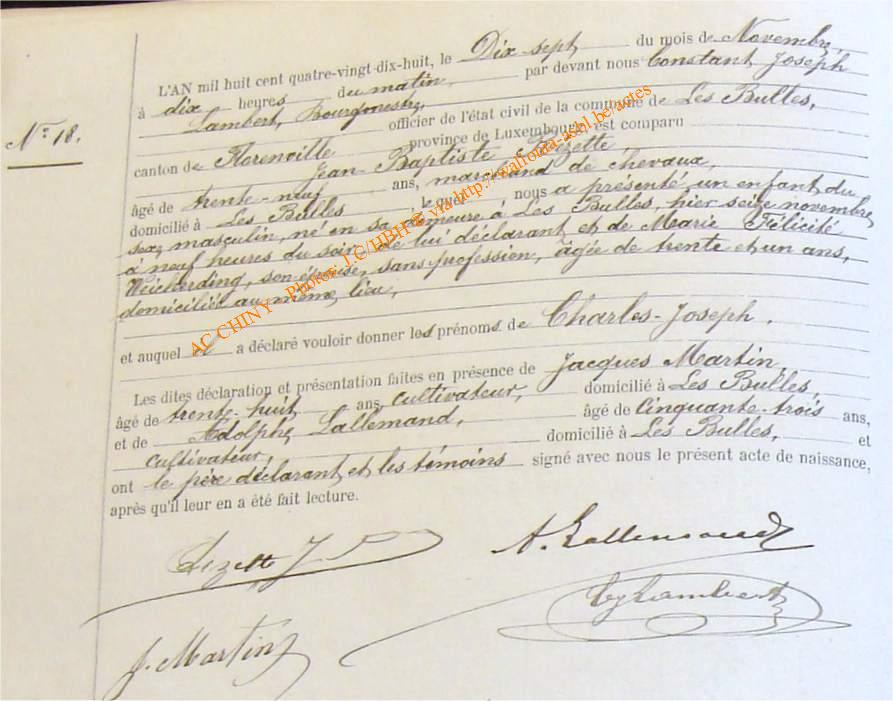 L'AN mil huit cent quatre-vingt-dix-huit, le Dix-sept du mois de Novembre,
à dix heures du matin, par devant nous Constant Joseph
Lambert, Bourgmestre, officier de l'état civil de la commune de Les Bulles,
N° 18.
canton de Florenville province de Luxembourg, est comparu
Jean-Baptiste Lizette,
âgé de trente-neuf ans, marchand de chevaux,
domicilié à Les Bulles, lequel nous a présenté un enfant du
sexe masculin, né en sa demeure à Les Bulles, hier seize novembre
à neuf heures du soir, de lui déclarant et de Marie Félicité
Weicherding, son épouse, sans profession, âgée de trente et un ans,
domiciliés au même lieu,
et auquel il a déclaré vouloir donner les prénoms de Charles-Joseph.
Les dites déclaration et présentation faites en présence de Jacques Martin,
âgé de trente-huit ans, cultivateur, domicilié à Les Bulles,
et de Adolphe Lallemand, âgé de Cinquante-trois ans,
cultivateur, domicilié à Les Bulles, et
ont le père déclarant et les témoins signé avec nous le présent acte de naissance,
après qu'il leur en a été fait lecture.
Lizette J
A. Lallemand
J. Martin
Lambert
AC CHINY - Photos: J.C/HBH © via http://wallonia-asbl.be/actes